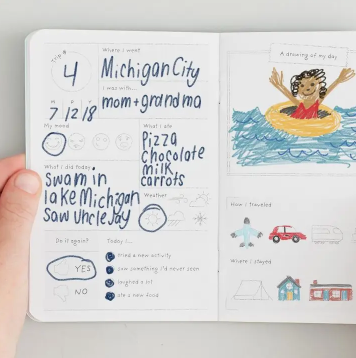 Trip #
4
Where I went
Michigan City
I was with...
mom + grandma
M D Y
7 12 18
My mood
What I ate
pizza
chocolate
milk
carrots
What I did today
swam in
lake Michigan
Saw Uncle Jay
Weather
Do it again?
YES
NO
Today I...
tried a new activity
saw something I'd never seen
laughed a lot
ate a new food
A drawing of my day
How I traveled
Where I stayed